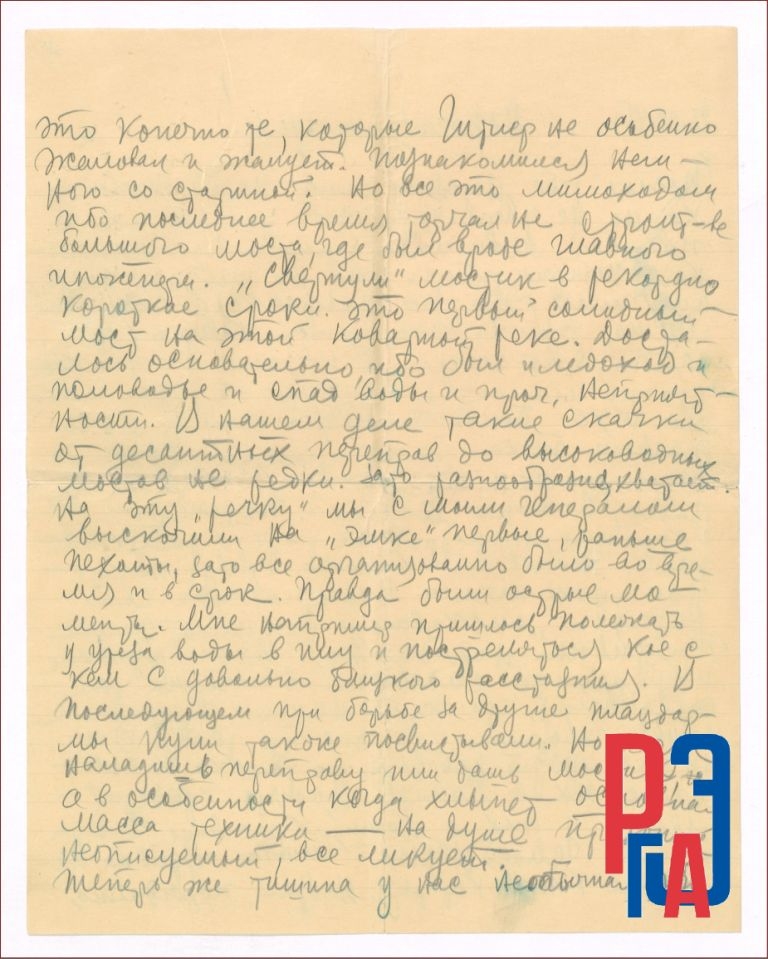 это конечно те, которые Гитлер не особенно
жаловал и жалует. Познакомился нем-
ного со стариной. Но все это мимоходом
ибо последнее время торчал на строит-ве
большого моста, где был вроде главного
инженера. „Свернули“ мостик в рекордно
короткие сроки. Это первый солидный
мост на этой коварной реке. Доста-
лось основательно, ибо был и ледоход и
половодье и спад воды и проч. неприят-
ности. В нашем деле такие скачки
от десантных переправ до высоководных
мостов не редки. Зато разнообразия хватает.
На эту „речку“ мы с моим генералом
выскочили на „эмке“ первые, раньше
пехоты, зато все организованно было во вре-
мя и в срок. Правда были острые мо-
менты. Мне например пришлось полежать
у уреза воды в и постреляться кое с
кем с довольно близкого расстояния. В
последующем при борьбе за другие плацдар-
мы пули также посвистывали. Но
наладишь переправу или дашь мост
а в особенности когда хлынет основная
масса техники — на душе
неописуемый, все ликует.
Теперь же тишина у нас необычная
РГАЭ